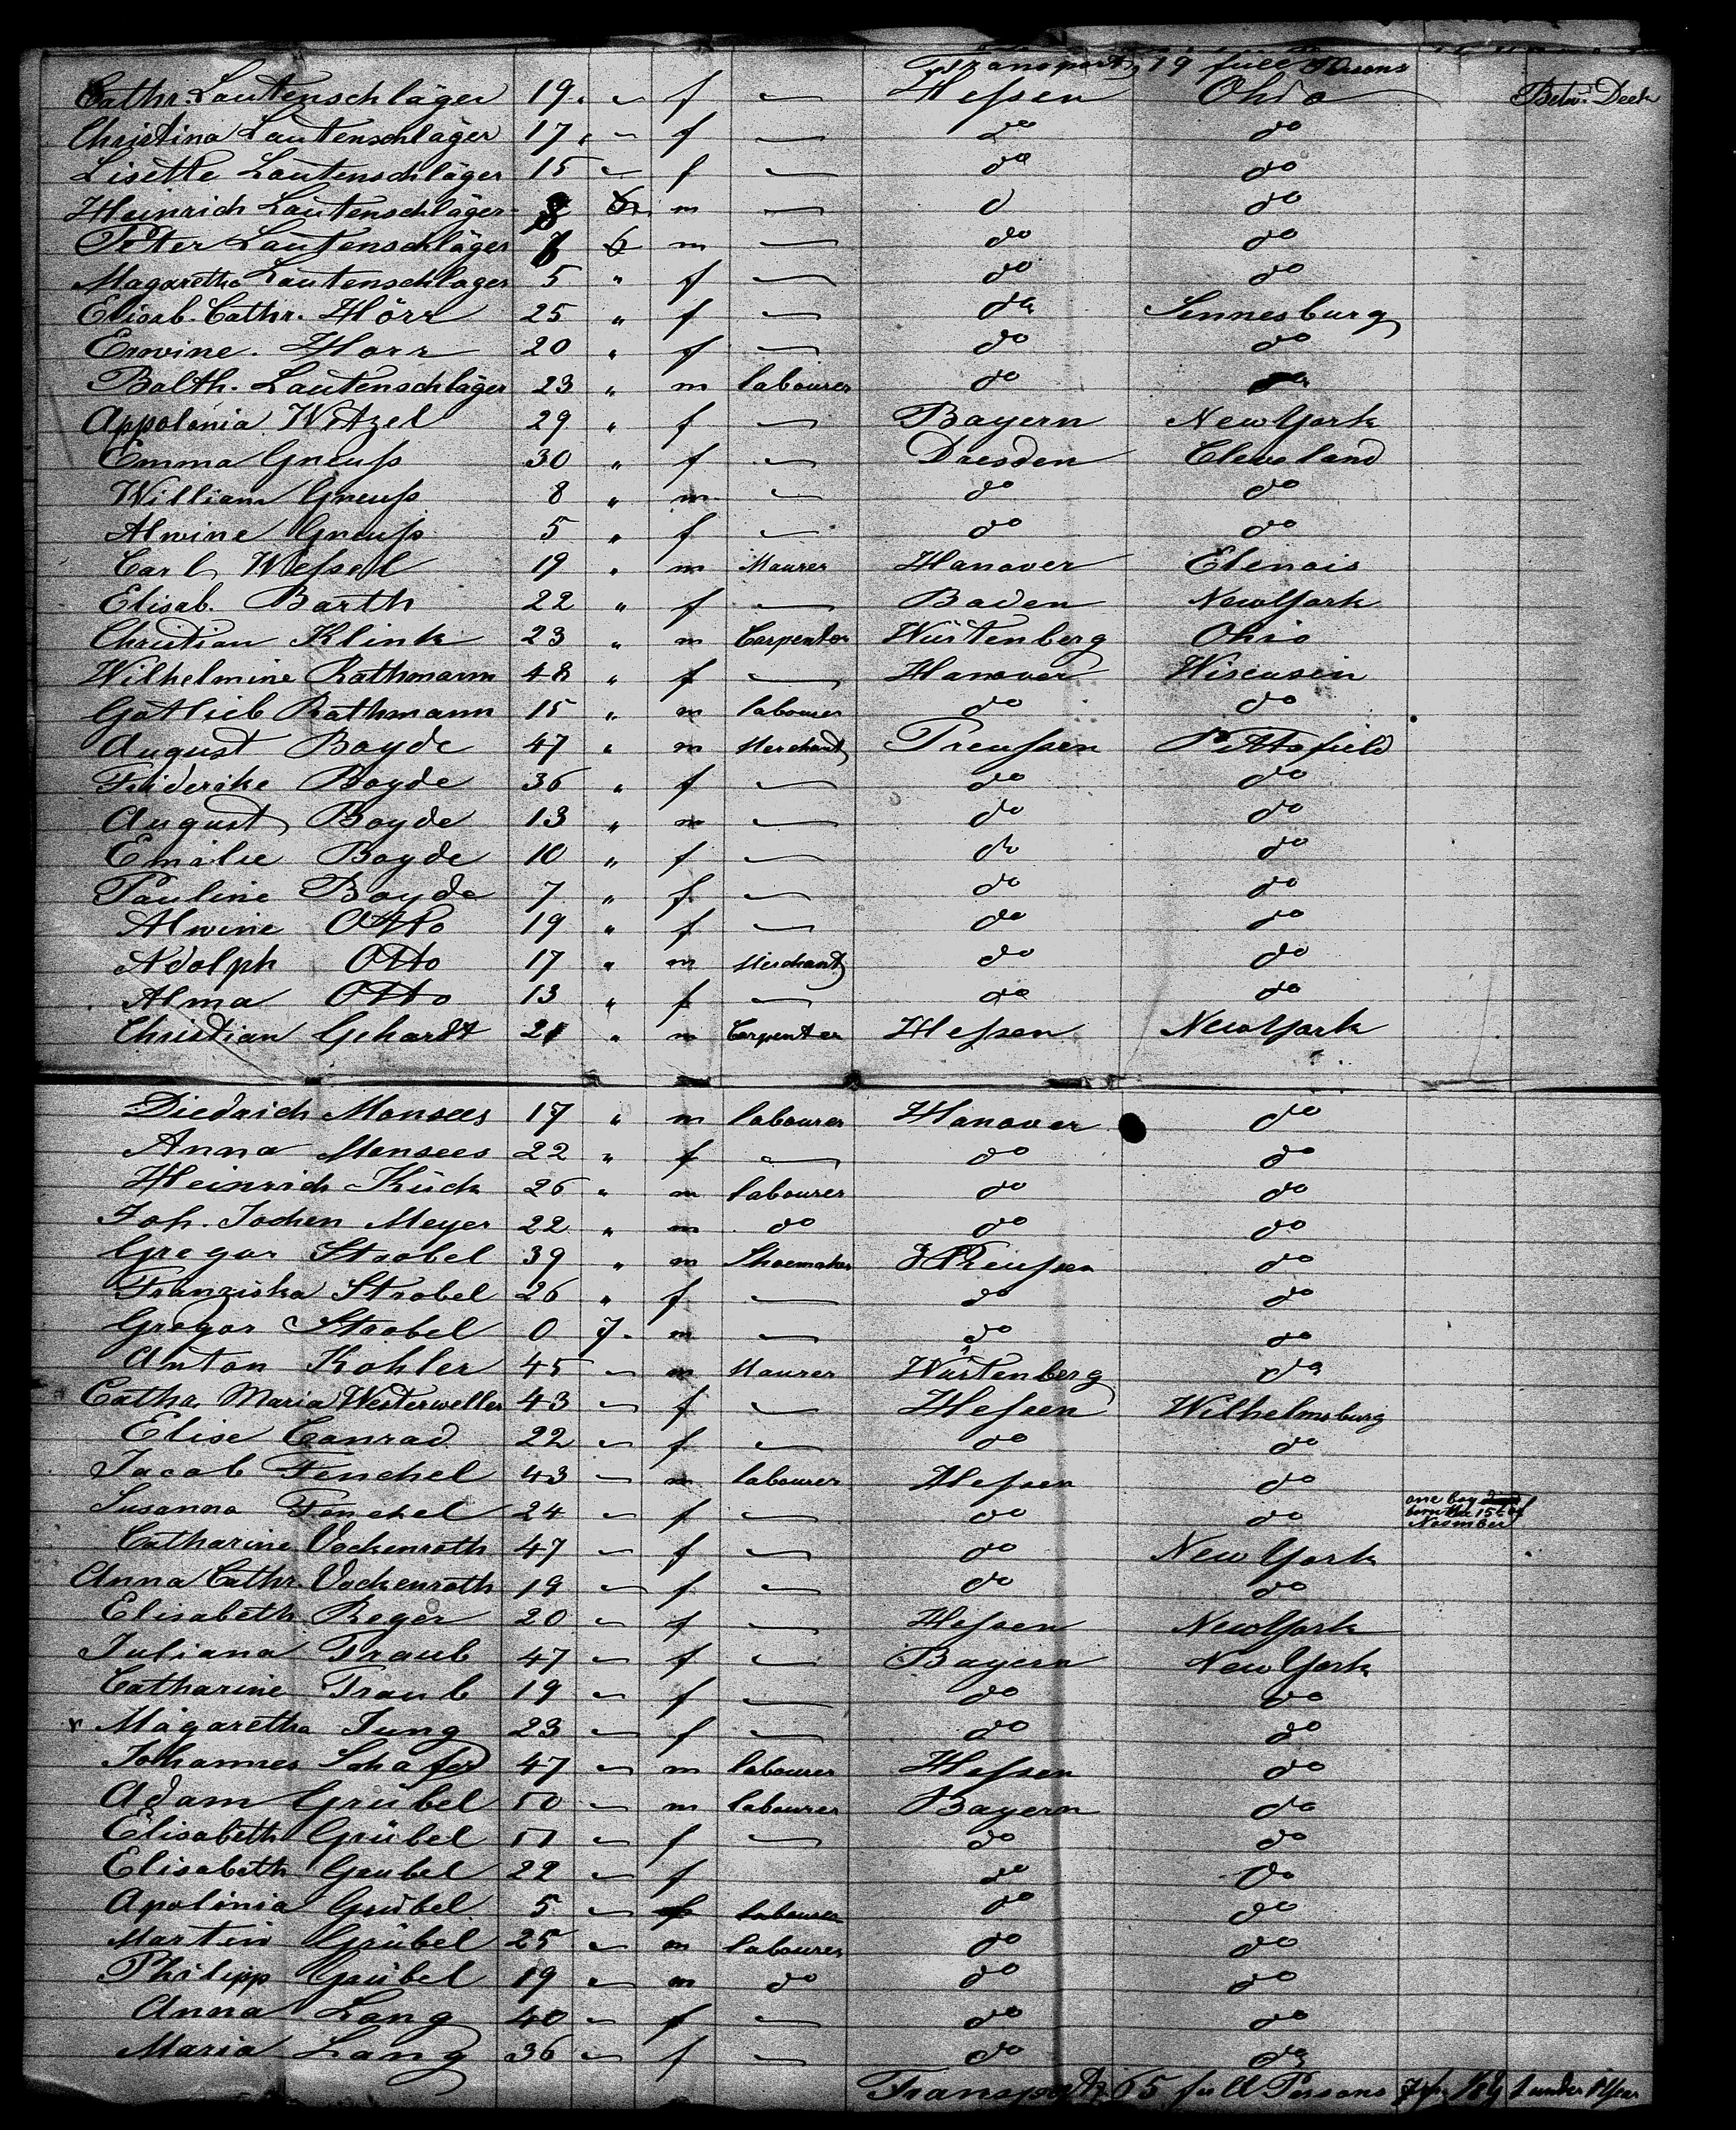 Transport, 19 full Persons
Cathr. Lautenschläger 19 " f — Hessen Ohio Betw. Deck
Christina Lautenschläger 17 " f — do do
Lisette Lautenschläger 15 " f — do do
Heinrich Lautenschläger 8 m — d do
Peter Lautenschläger m — do do
Magaretha Lautenschlager 5 " f — do do
Elisab. Cathr. Hörr 25 " f — do Sennesburg
Erwine. Horr 20 " f — do do
Balth. Lautenschläger 23 " m labourer do
Appolonia Witzel 29 " f — Bayern New York
Emma Gneuss 30 " f — Dresden Cleveland
William Gneuss 8 " m — do do
Alwine Gneuss 5 " f — do do
Carl Wessel 19 " m Maurer Hanover Elinois
Elisab. Barth 22 " f — Baden New York
Christian Klink 23 " m Carpenter Würtenberg Ohio
Wilhelmine Rathmann 48 " f — Hanover Wiscusin
Gottlieb Rathmann 15 " m labourer do do
August Boyde 47 " m Merchant Preussen Pittsfield
Friderike Boyde 36 " f — do do
August Boyde 13 " m — do do
Emilie Boyde 10 " f — do do
Pauline Boyde 7 " f — do do
Alwine Otto 19 " f — do do
Adolph Otto 17 " m Merchant do do
Alma Otto 13 " f — do do
Christian Gehardt 21 " m Carpenter Hessen New York
Diedrich Monsees 17 " m labourer Hanover do
Anna Monsees 22 " f — do do
Heinrich Kück 26 " m labourer do do
Joh. Jochen Meyer 22 " m do do do
Gregor Strobel 39 " m Shoemaker Preussen do
Franziska Strobel 26 " f — do do
Gregor Strobel 0 7 m — do do
Anton Kohler 45 " m Maurer Würtenberg do
Cathr. Maria Westerweller 43 " f — Hessen Wilhelmsburg
Elise Conrad 22 " f — do do
Jacob Fenchel 43 " m labourer Hessen do
Susanna Fenchel 24 " f — do do one boy born the 15th of November
Catharine Vockenroth 47 " f — do New York
Anna Cathr. Vockenroth 19 " f — do do
Elisabeth Reger 20 " f — Hessen New York
Juliana Traub 47 " f — Bayern New York
Catharine Traub 19 " f — do do
Magaretha Jung 23 " f — do do
Johannes Schafer 47 " m labourer Hessen do
Adam Grübel 50 " m labourer Bayern do
Elisabeth Grübel 51 " f — do do
Elisabeth Grubel 22 " f do do
Apolonia Grübel 5 " f labourer do do
Martin Grübel 25 " m labourer do do
Philipp Grübel 19 " m do do do
Anna Lang 40 " f — do do
Maria Lang 36 " f — do do
Transport, 65 full Persons 1 under 1 Year